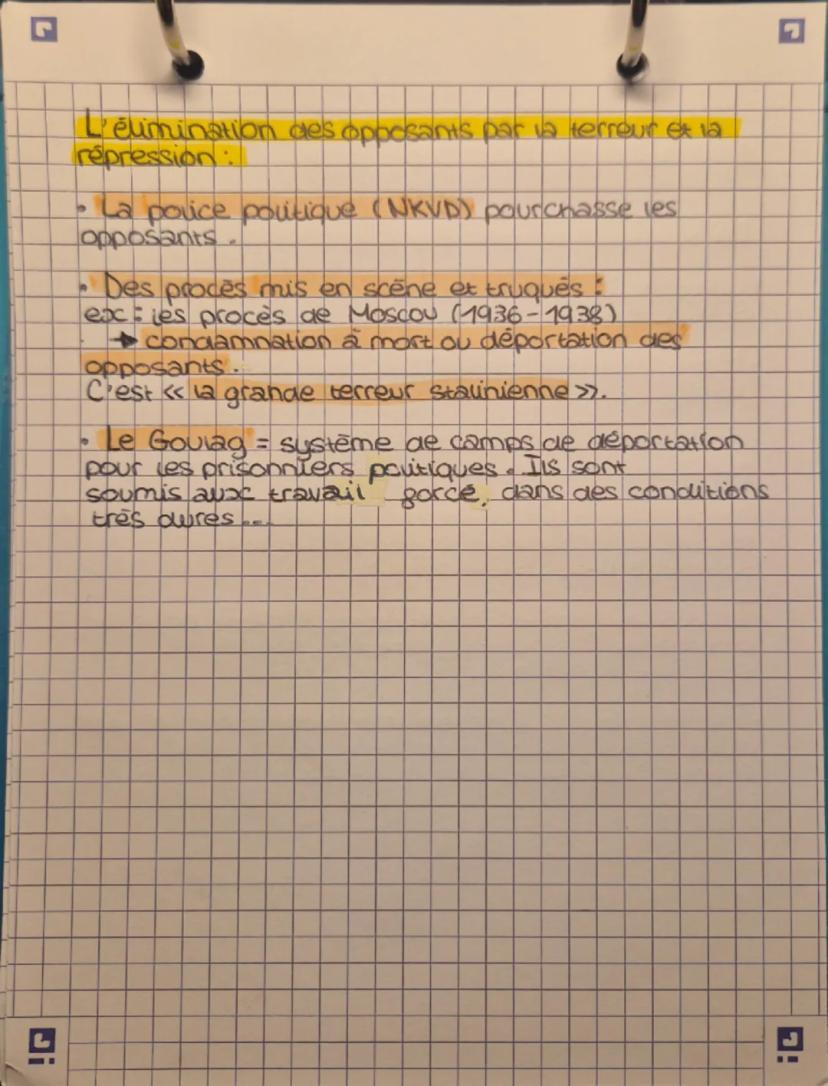 L'élimination des opposants par la terreur et la
répression :
• La police politique (NKVD) pourchasse les
opposants.
• Des procès mis en scène et truqués :
ex : les procès de Moscou (1936-1938)
→ condamnation à mort ou déportation des
opposants.
C'est « la grande terreur stalinienne ».
• Le Goulag = système de camps de déportation
pour les prisonniers politiques. Ils sont
soumis aux travail forcé, dans des conditions
très dures...